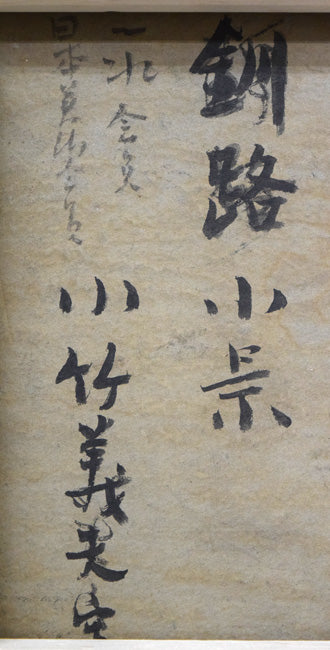 釧路小景
一水会員
日本美術会員
小竹義夫